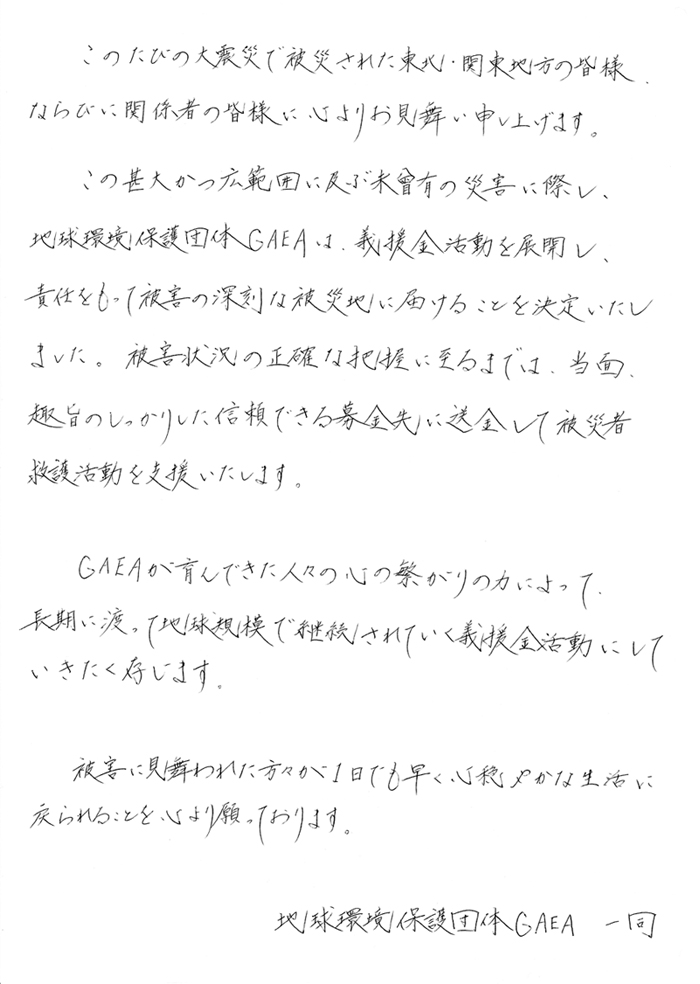 このたびの大震災で被災された東北・関東地方の皆様、
ならびに関係者の皆様に心よりお見舞い申し上げます。
この甚大かつ広範囲に及ぶ未曾有の災害に際し、
地球環境保護団体GAEAは、義援金活動を展開し、
責任をもって被害の深刻な被災地に届けることを決定いたし
ました。被害状況の正確な把握に至るまでは、当面、
趣旨のしっかりした信頼できる募金先に送金して被災者
救護活動を支援いたします。
GAEAが育んできた人々の心の繋がりの力によって、
長期に渡って地球規模で継続されていく義援金活動にして
いきたく存じます。
被害に見舞われた方々が1日でも早く心穏やかな生活に
戻られることを心より願っております。
地球環境保護団体GAEA 一同